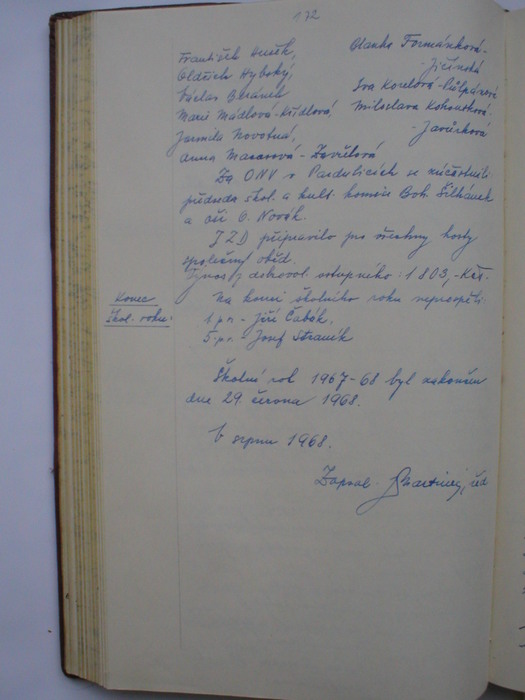 172
František Hušek,
Oldřich Hybský,
Václav Beránek
Marie Mádlová-Křídlová,
Jarmila Novotná,
Anna Macasová - Zavřelová
Blanka Formánková-
Jičínská
Iva Korelová-Půlpánová
Miloslava Kohoutková
- Javůrková
Za ONV v Pardubicích se zúčastnili
předseda škol. a kult. komise Boh. Šilhánek
a oši O. Novák.
JZD připravilo pro všechny hosty
společný oběd.
Výnos z dobrovol. vstupného: 1 803,- Kčs.
Konec
škol. roku:
Na konci školního roku neprospěli:
1. p.r. - Jiří Čabák,
5. p.r. - Josef Straník
Školní rok 1967-68 byl zakončen
dne 29. června 1968.
V srpnu 1968.
Zapsal